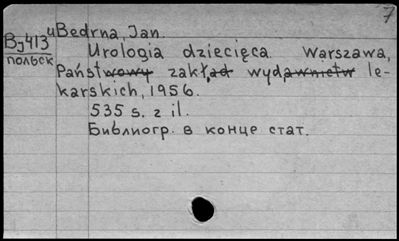 7
Вј413 и
польск
Bedrna, Jan.
Urologia dziecięca. Warszawa,
Państwowy zakład wydawnictw le-
karskich, 1956.
535 s. z il.
Библиогр. в конце стат.